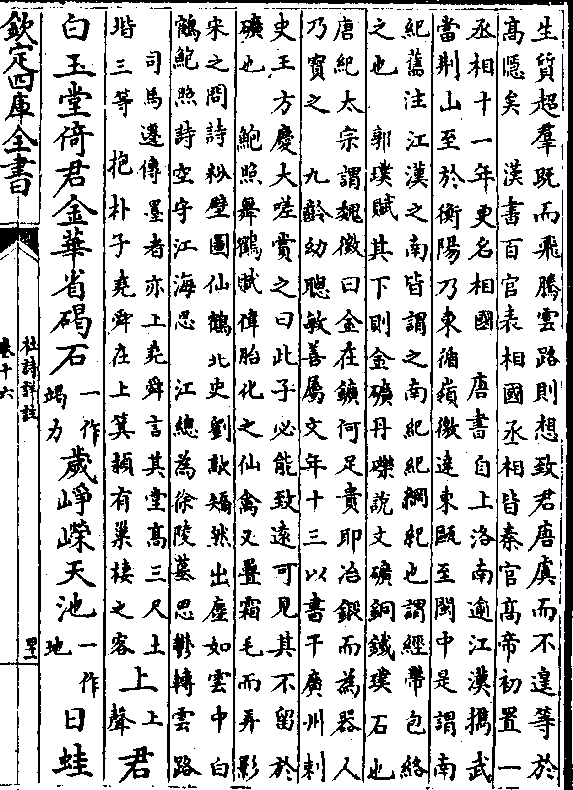 生質超羣既而飛騰雲路則想致君唐虞而不遑等於
高隱矣　漢書百官表相國丞相皆秦官高帝初置一
丞相十一年更名相國　唐書自上洛南逾江漢攜武
當荆山至於衡陽乃東循嶺徼達東甌至閩中是謂南
紀舊注江漢之南皆謂之南紀紀綱紀也謂經帶包絡
之也　郭璞賦其下則金礦丹礫說文礦銅鐵璞石也
唐紀太宗謂魏徵曰金在鑛何足貴即冶鍛而為器人
乃寳之　九齡幼聰敏善屬文年十三以書干廣州刺
史王方慶大嗟賞之曰此子必能致遠可見其不留於
礦也　鮑照舞鶴賦偉胎化之仙禽又疊霜毛而弄影
宋之問詩粉壁圖仙鶴北史劉歊矯然出塵如雲中白
鶴鮑照詩空守江海思　江總為徐陵墓思鬱轉雲路
司馬遷傳墨者亦上堯舜言其堂高三尺土
堦三等　抱朴子堯舜在上箕潁有巢棲之客
上上聲君
白玉堂倚君金華省碣石一作竭力歲崢嶸天池一作地日蛙
欽定四庫全書
杜詩詳註
卷十六